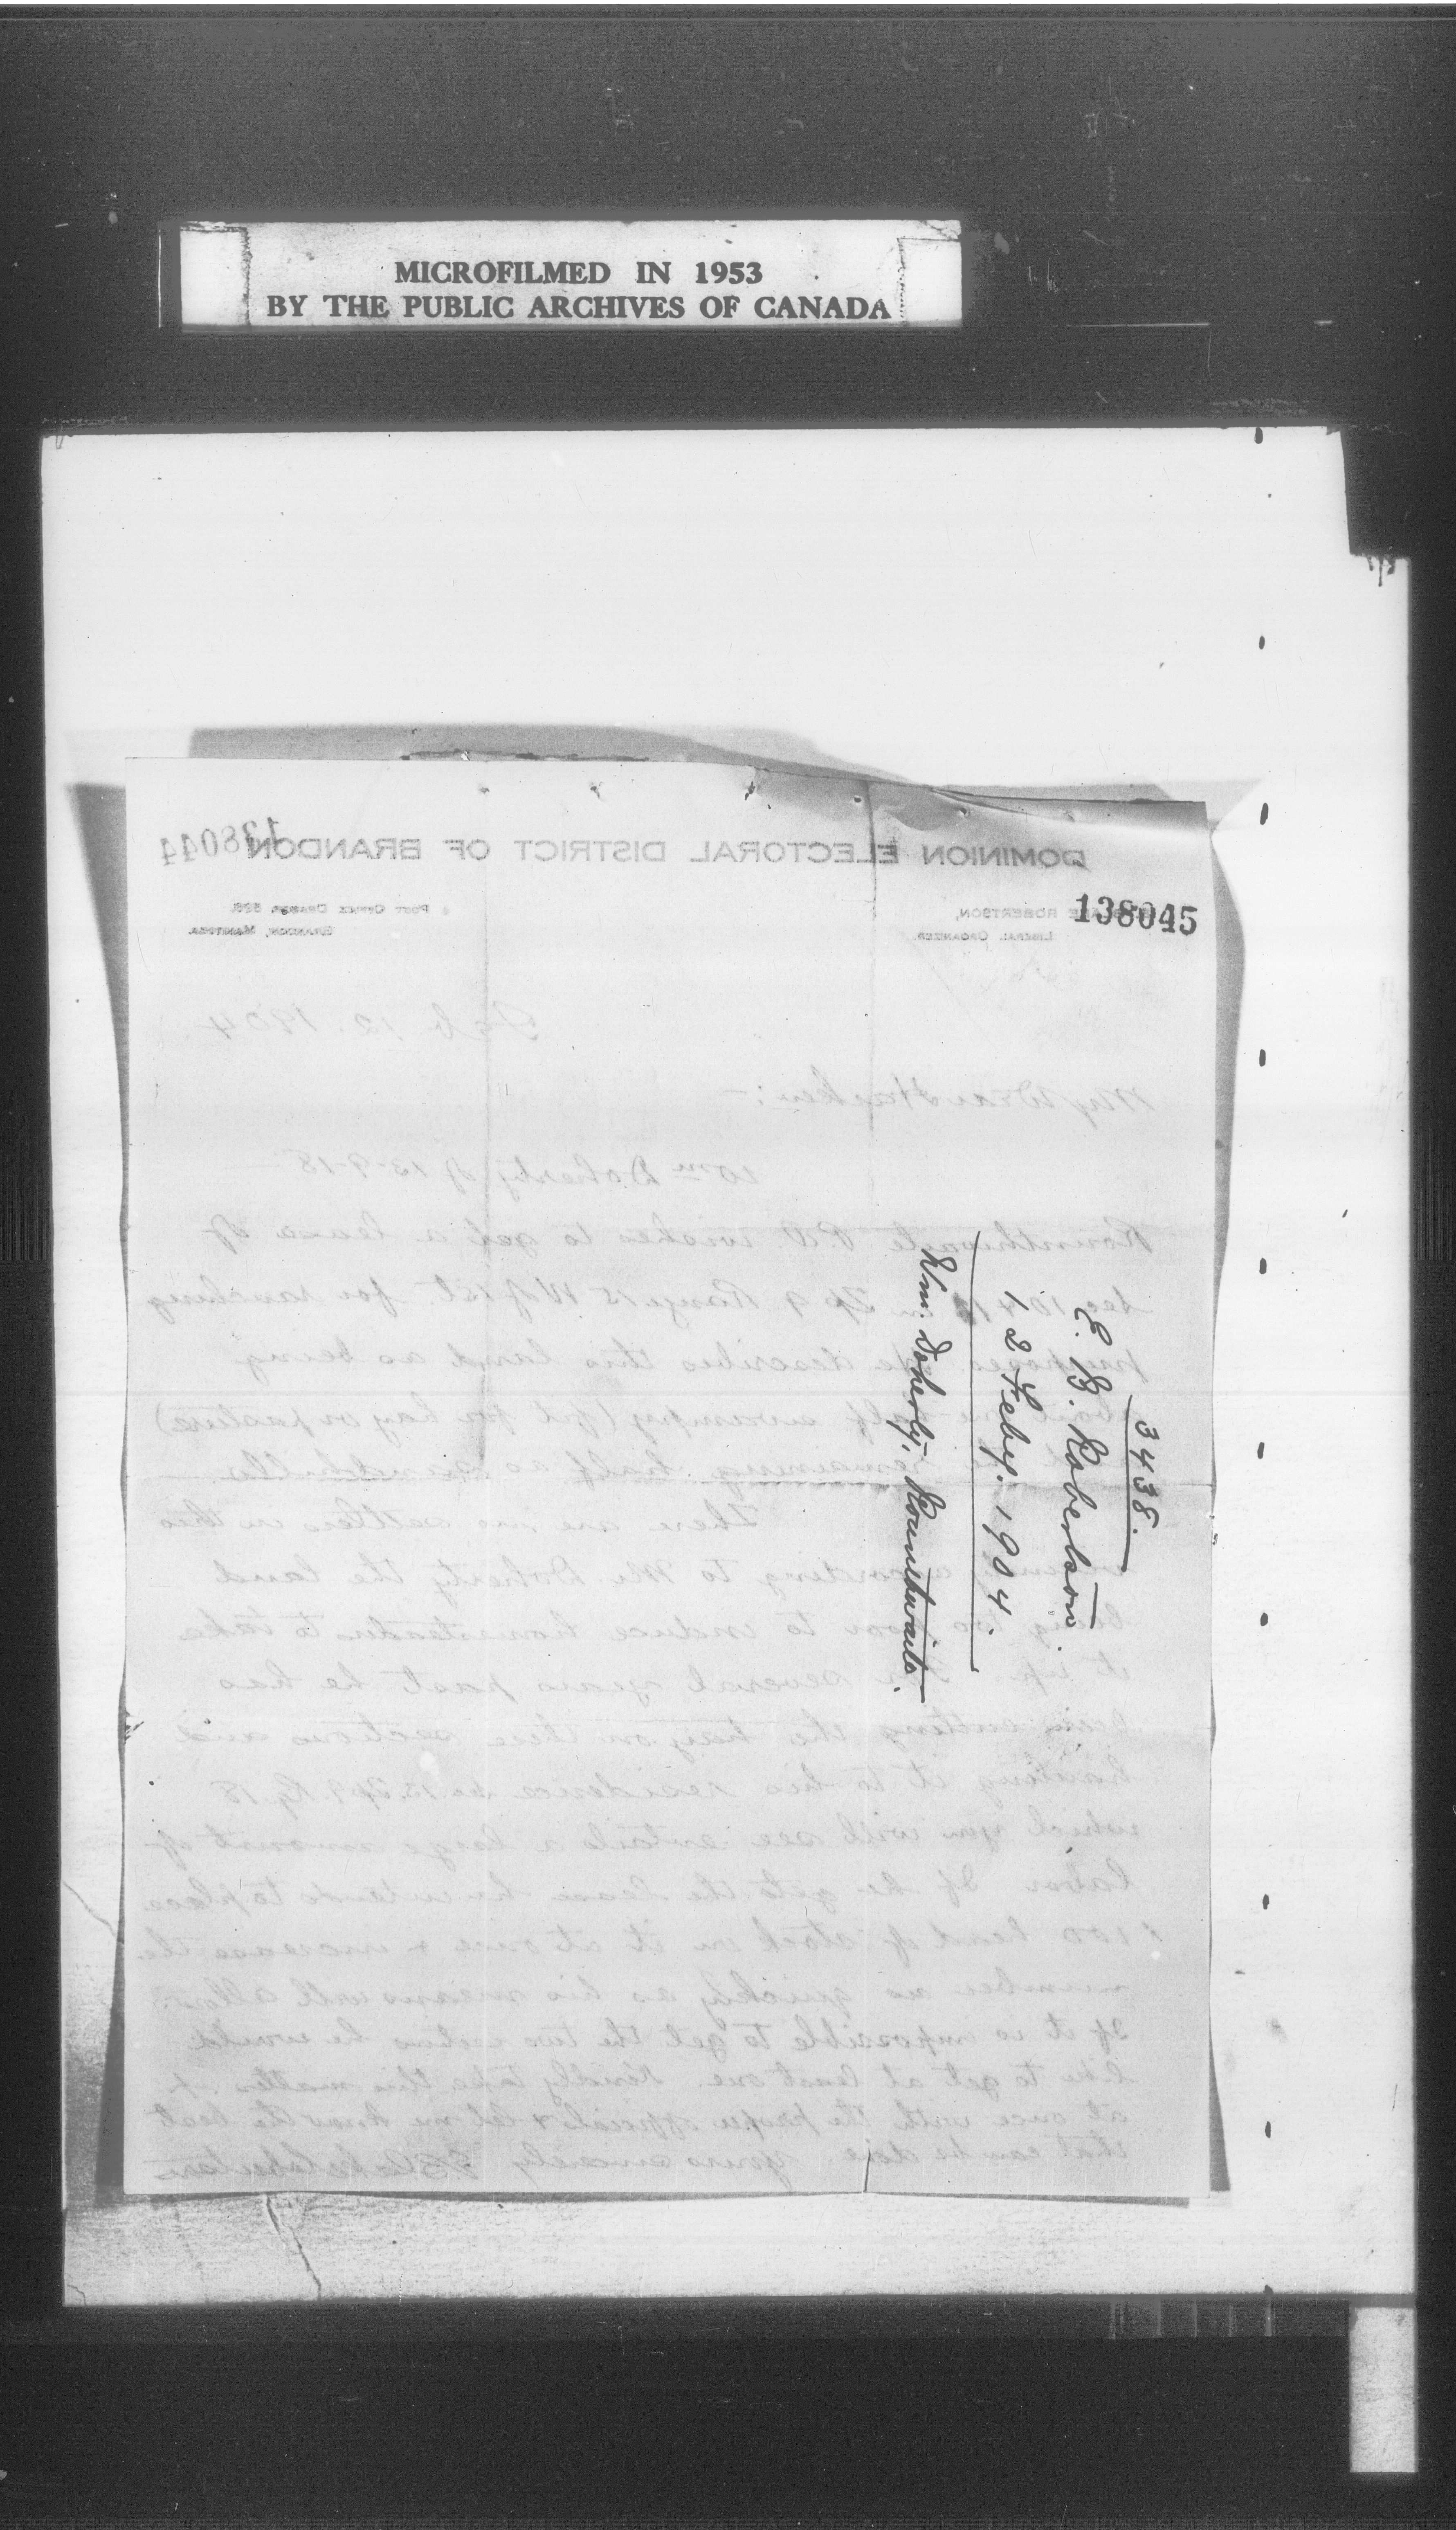 MICROFILMED IN 1953
BY THE PUBLIC ARCHIVES OF CANADA
138044
DOMINION ELECTORAL DISTRICT OF BRANDON
138045
ROBERTSON,
LIBERAL ORGANIZER.
POST OFFICE DRAWER 526.
BRANDON, MANITOBA
Feb 12. 1904
My Dear
Wm Doherty of 13-9-18
Rounthwaite P.O wishes to get a lease of
Sec 10 Tp 9 Range 15 W of 1st for ranching
purposes. He describes this land as being
about one half swampy (fit for hay or pasture)
remaining half as sandhills
There are no settlers in this
according to Mr Doherty the land
being too poor to induce homesteaders to take
it up. For several years past he has
been cutting the hay on these sections and
hauling it to his residence Sec 13. Tp 9. Rg 18
which you will see entails a large amount of
labor If he gets the lease he intends to place
100 head of stock on it at once & increase the
number as quickly as his means will allow
If it is impossible to get the two sections he would
like to get at least one. Kindly take this matter up
at once with the proper official & let me know the best
that can be done. Yours sincerely
3438.
E. B. Robertson
12 Feby. 1904.
Wm. Doherty, Rounthwaite.